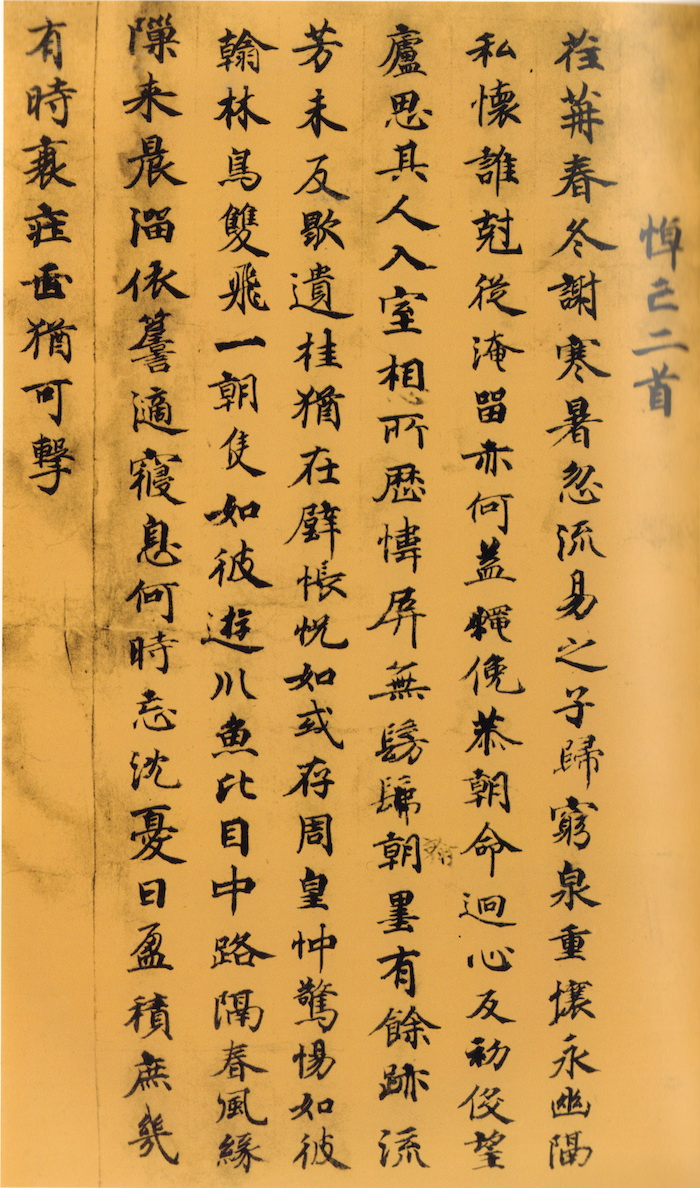 悼亡二首
荏苒春冬謝寒暑忽流易之子歸窮泉重壤永幽隔
私懷誰尅從淹留亦何益僶俛恭朝命迴心反初役望
廬思其人入室想所歷幃屏無髣髴朝墨有餘跡流
翰
芳未及歇遺桂猶在壁悵怳如或存周皇忡驚惕如彼
翰林鳥雙飛一朝隻如彼遊川魚比目中路隔春風緣
隟来晨溜依簷適寢息何時忘沈憂日盈積庶幾
有時衰莊缶猶可擊